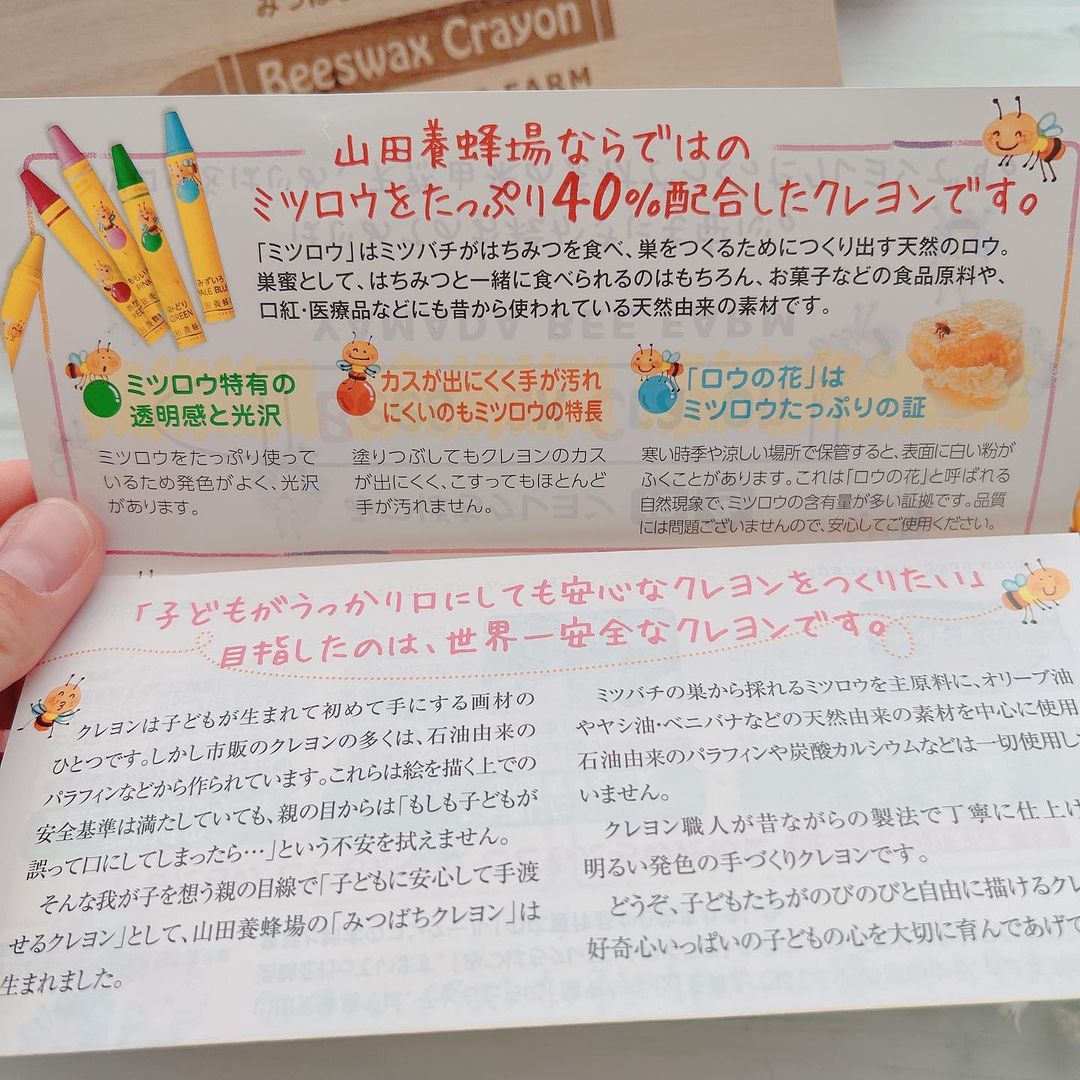 Beeswax Crayon
FARM
山田養蜂場ならではの
ミツロウをたっぷり40%配合したクレヨンです。
「ミツロウ」はミツバチがはちみつを食べ、巣をつくるためにつくり出す天然のロウ。
巣蜜として、はちみつと一緒に食べられるのはもちろん、お菓子などの食品原料や、
口紅・医療品などにも昔から使われている天然由来の素材です。
ミツロウ特有の
透明感と光沢
ミツロウをたっぷり使って
いるため発色がよく、光沢
があります。
カスが出にくく手が汚れ
にくいのもミツロウの特長
塗りつぶしてもクレヨンのカス
が出にくく、こすってもほとんど
手が汚れません。
「ロウの花」は
ミツロウたっぷりの証
寒い時季や涼しい場所で保管すると、表面に白い粉が
ふくことがあります。これは「ロウの花」と呼ばれる
自然現象で、ミツロウの含有量が多い証拠です。品質
には問題ございませんので、安心してご使用ください。
「子どもがうっかり口にしても安心なクレヨンをつくりたい」
目指したのは、世界一安全なクレヨンです。
クレヨンは子どもが生まれて初めて手にする画材の
ひとつです。しかし市販のクレヨンの多くは、石油由来の
パラフィンなどから作られています。これらは絵を描く上での
安全基準は満たしていても、親の目からは「もしも子どもが
誤って口にしてしまったら…」という不安を拭えません。
そんな我が子を想う親の目線で「子どもに安心して手渡
せるクレヨン」として、山田養蜂場の「みつばちクレヨン」は
生まれました。
ミツバチの巣から採れるミツロウを主原料に、オリーブ油
やヤシ油・ベニバナなどの天然由来の素材を中心に使用
石油由来のパラフィンや炭酸カルシウムなどは一切使用し
いません。
クレヨン職人が昔ながらの製法で丁寧に仕上げ
明るい発色の手づくりクレヨンです。
どうぞ、子どもたちがのびのびと自由に描けるクレ
好奇心いっぱいの子どもの心を大切に育んであげて